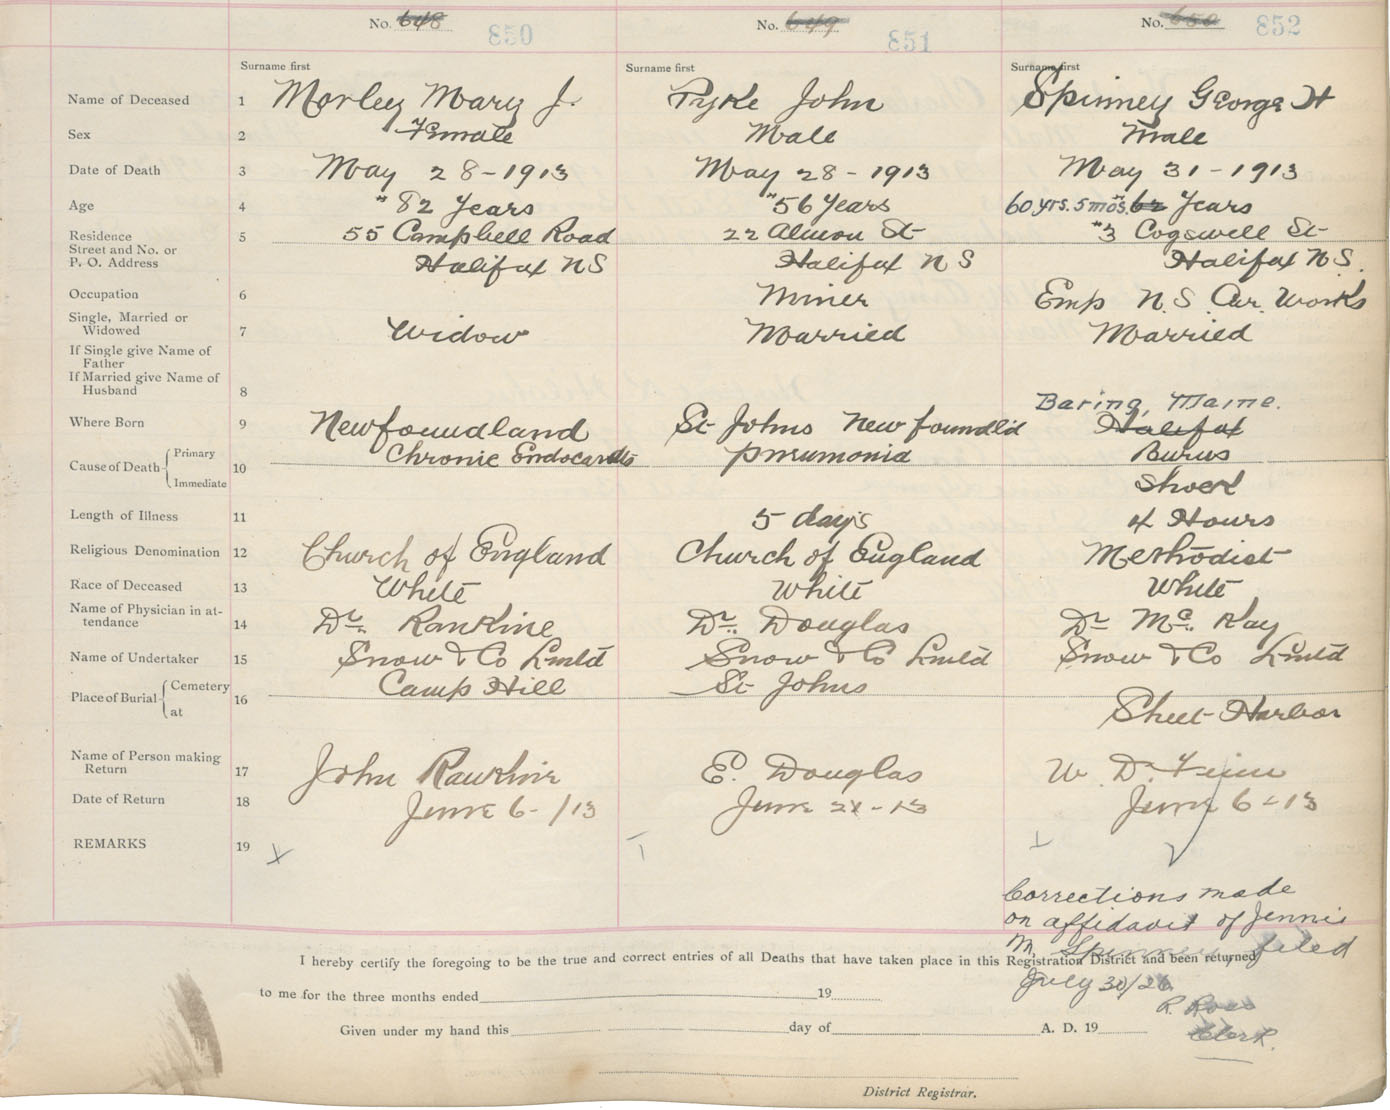 No. 648 850 No. 649 851 No. 650 852
Surname first Surname first Surname first
Name of Deceased 1 Morley Mary J. Pyke John Spinney George H
Sex 2 Female Male Male
Date of Death 3 May 28-1913 May 28-1913 May 31-1913
Age 4 "82 Years "56 Years 60 yrs. 5 mos. 62 Years
Residence Street and No. or P. O. Address 5 55 Campbell Road 22 Almon St- #3 Cogswell St-
Halifax NS Halifax NS Halifax NS.
Occupation 6 Miner Emp N.S. Car Works
Single, Married or Widowed 7 Widow Married Married
If Single give Name of Father
If Married give Name of Husband 8
Baring, Maine.
Where Born 9 Newfoundland St Johns Newfoundld Halifax
Cause of Death Primary 10 Chronic Endocardits Pneumonia Burns
Immediate Shock
Length of Illness 11 5 days 4 Hours
Religious Denomination 12 Church of England Church of England Methodist
Race of Deceased 13 White White White
Name of Physician in attendance 14 Dr. Rankine Dr. Douglas Dr Mc. Kay
Name of Undertaker 15 Snow & Co Lmtd Snow & Co Lmtd Snow & Co Lmtd
Place of Burial Cemetery 16 Camp Hill St Johns
at Sheet Harbor
Name of Person making Return 17 John Rankine E. Douglas W. D. Finn
Date of Return 18 June 6-/13 June 21-13 June 6-13
REMARKS 19
Corrections made
on affidavit of Jennie
M. Spinney filed
I hereby certify the foregoing to be the true and correct entries of all Deaths that have taken place in this Registration District and been returned
July 30/26
to me for the three months ended 19
R. Ross
Given under my hand this day of A. D. 19
Clerk.
District Registrar.